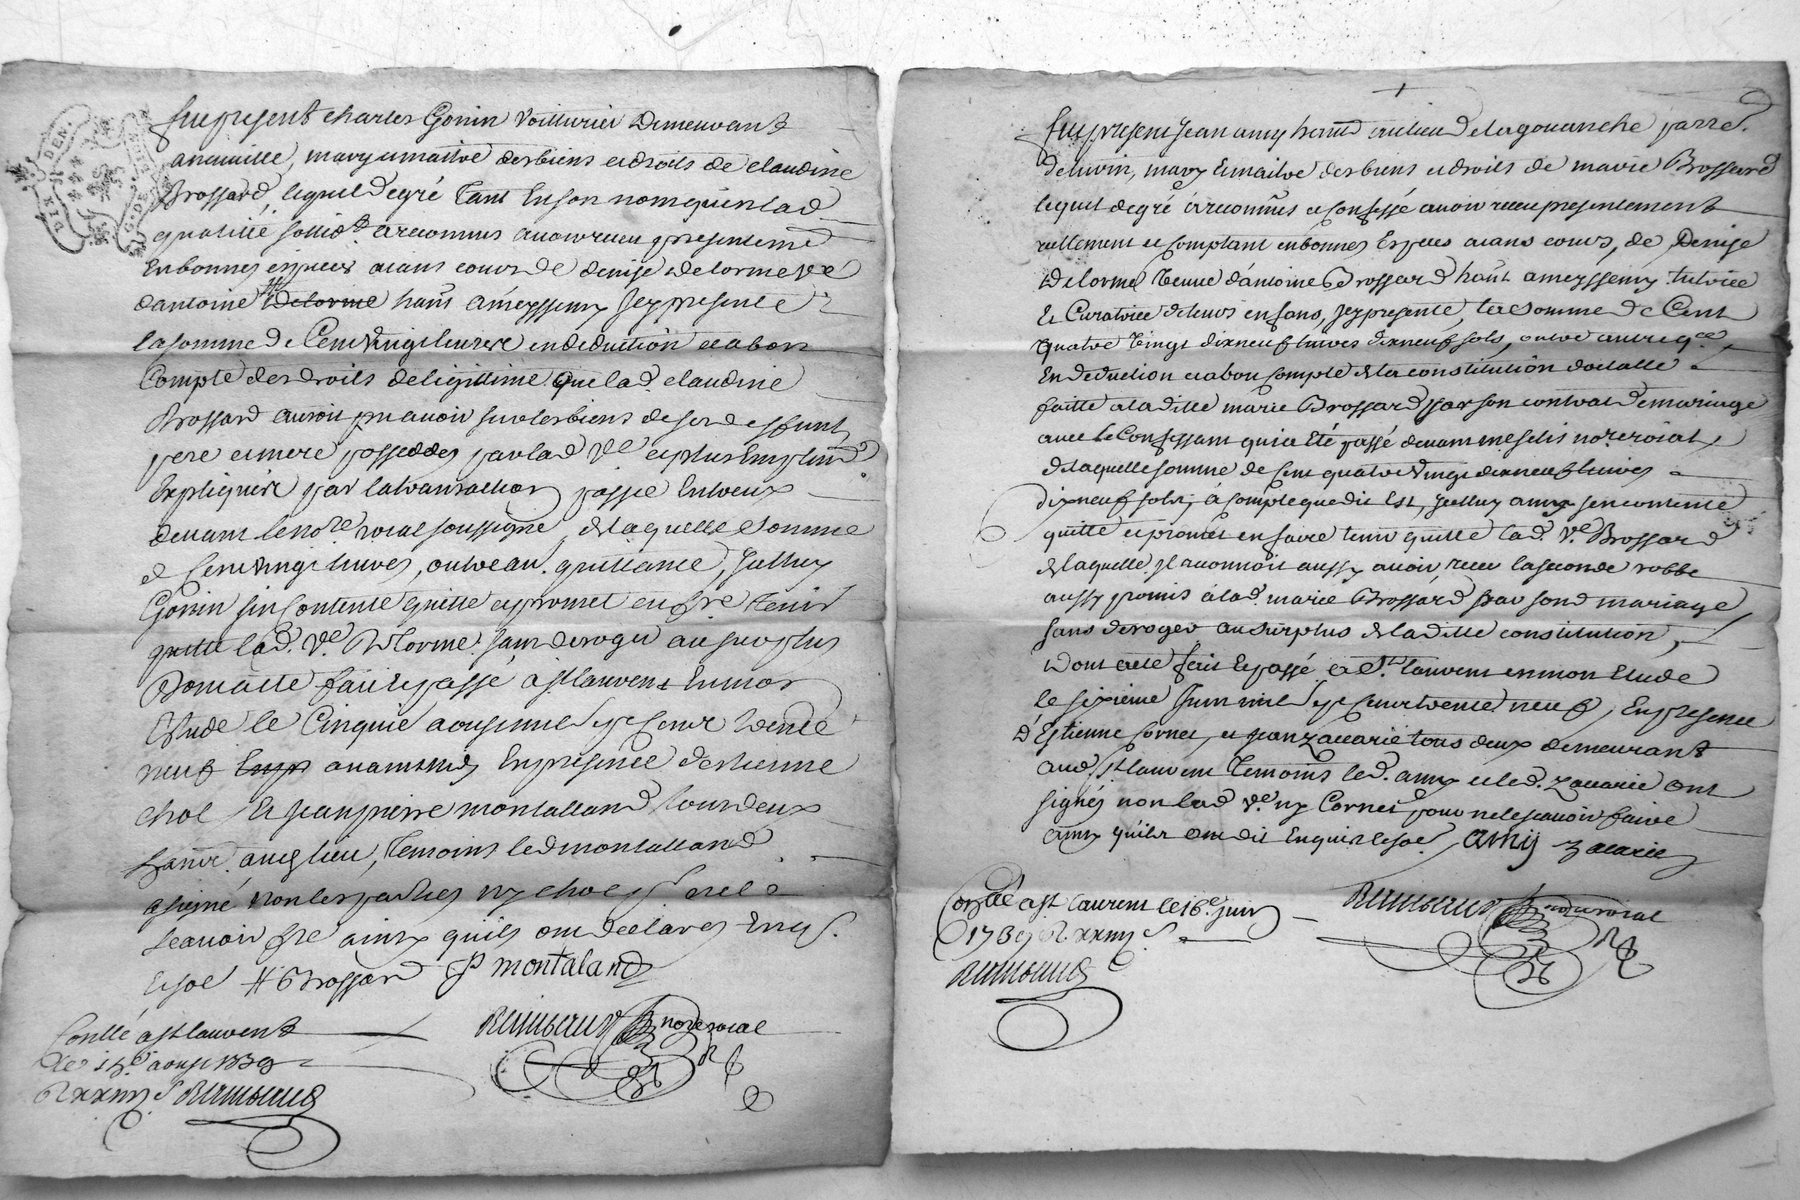 DIX DEN.
G. DE
fut present charles Gonin Voitturier Demeurant
aneuville, mary et maitre des biens et droits de claudine
Brossard, lequel de gré tant En son nom qu'en lad.
qualitté sollid. a reconnus avoir receu presentemt
En bonnes especes aians cours de denise delorme ve
d'antoine delorme hant a meyssemy Jcy presente
la somme de Cent vingt livres et en deduction et a bon
Compte des droits de legittime que lad. claudine
Brossard auroit pu avoir sur les biens de ses deffunts
pere et mere possedes par lad ve et plus amplemt
Expliquées par la transaction passée Entreux
devant le nore roial soussigné, de laquelle somme
de Cent vingt livres, outre au. quittance, Jcelluy
Gonin s'en Contente quitte et promet en fre tenir
quitte lad. Ve. Delorme. sans deroger au surplus
Dont acte fait et passé a st laurent En mon
Etude le Cinquie aoust mil sept Cent trente
neuf avant midy En presence d'estienne
chol Et Jean pierre montalland tous deux
hant. aud lieu, temoins led montalland
a signé non les parties ny chol pr ne le
scavoir fre ainsy quils ont declarés Enqs.
Et sol # Brossard JP montaland
Conllé a st laurent Reimbaud nore roial
Le 15e aoust 1739
R xxiiij s Reimbaud
fut present Jean amy hant au lieu de la gouanche parre.
de lurin, mary Et maitre des biens et droits de marie Brossard
lequel de gré a reconnus et Confessé avoir receu presentement
reellement et Comptant en bonnes Especes aians cours, de Denise
Delorme Veuve d'antoine Brossard hant a meyssemy tutrice
Et Curatrice de leurs enfans, Jcy presente, la somme de Cent
quatre vingt dix neuf livres dix neuf sols, outre autre qce
En deduction et a bon Compte de la constitution dotalle
faitte a la ditte marie Brossard par son contrat de mariage
avec le Confessant qui a eté passé devant mesdis nores roial,
de laquelle somme de Cent quatre vingt dix neuf livres
dix neuf sols, a Compte que dit Est, Jcelluy amy s'en contente
quitte et promet en faire tenir quitte lad. ve. Brossard
de laquelle Jl reconnoit aussy avoir receu la seconde robbe
aussy promis a lad. marie Brossard par sond mariage,
sans deroger au surplus de la ditte constitution,
Dont acte fait Et passé a St laurent en mon Etude
le sixieme Juin mil sept Cent trente neuf, En presence
d'Estienne Cornet, et Jean zacarie tous deux demeurant
aud. st laurent temoins led. amy et led. zacarie ont
signés non lad ve. ny Cornet pour ne le scavoir faire
ainsy quils ont dit Enquis Et sol. amy zacarie
Conllé a st laurent le 16e. juin Reimbaud nore roial
1739 R xxiiij s.
Reimbaud